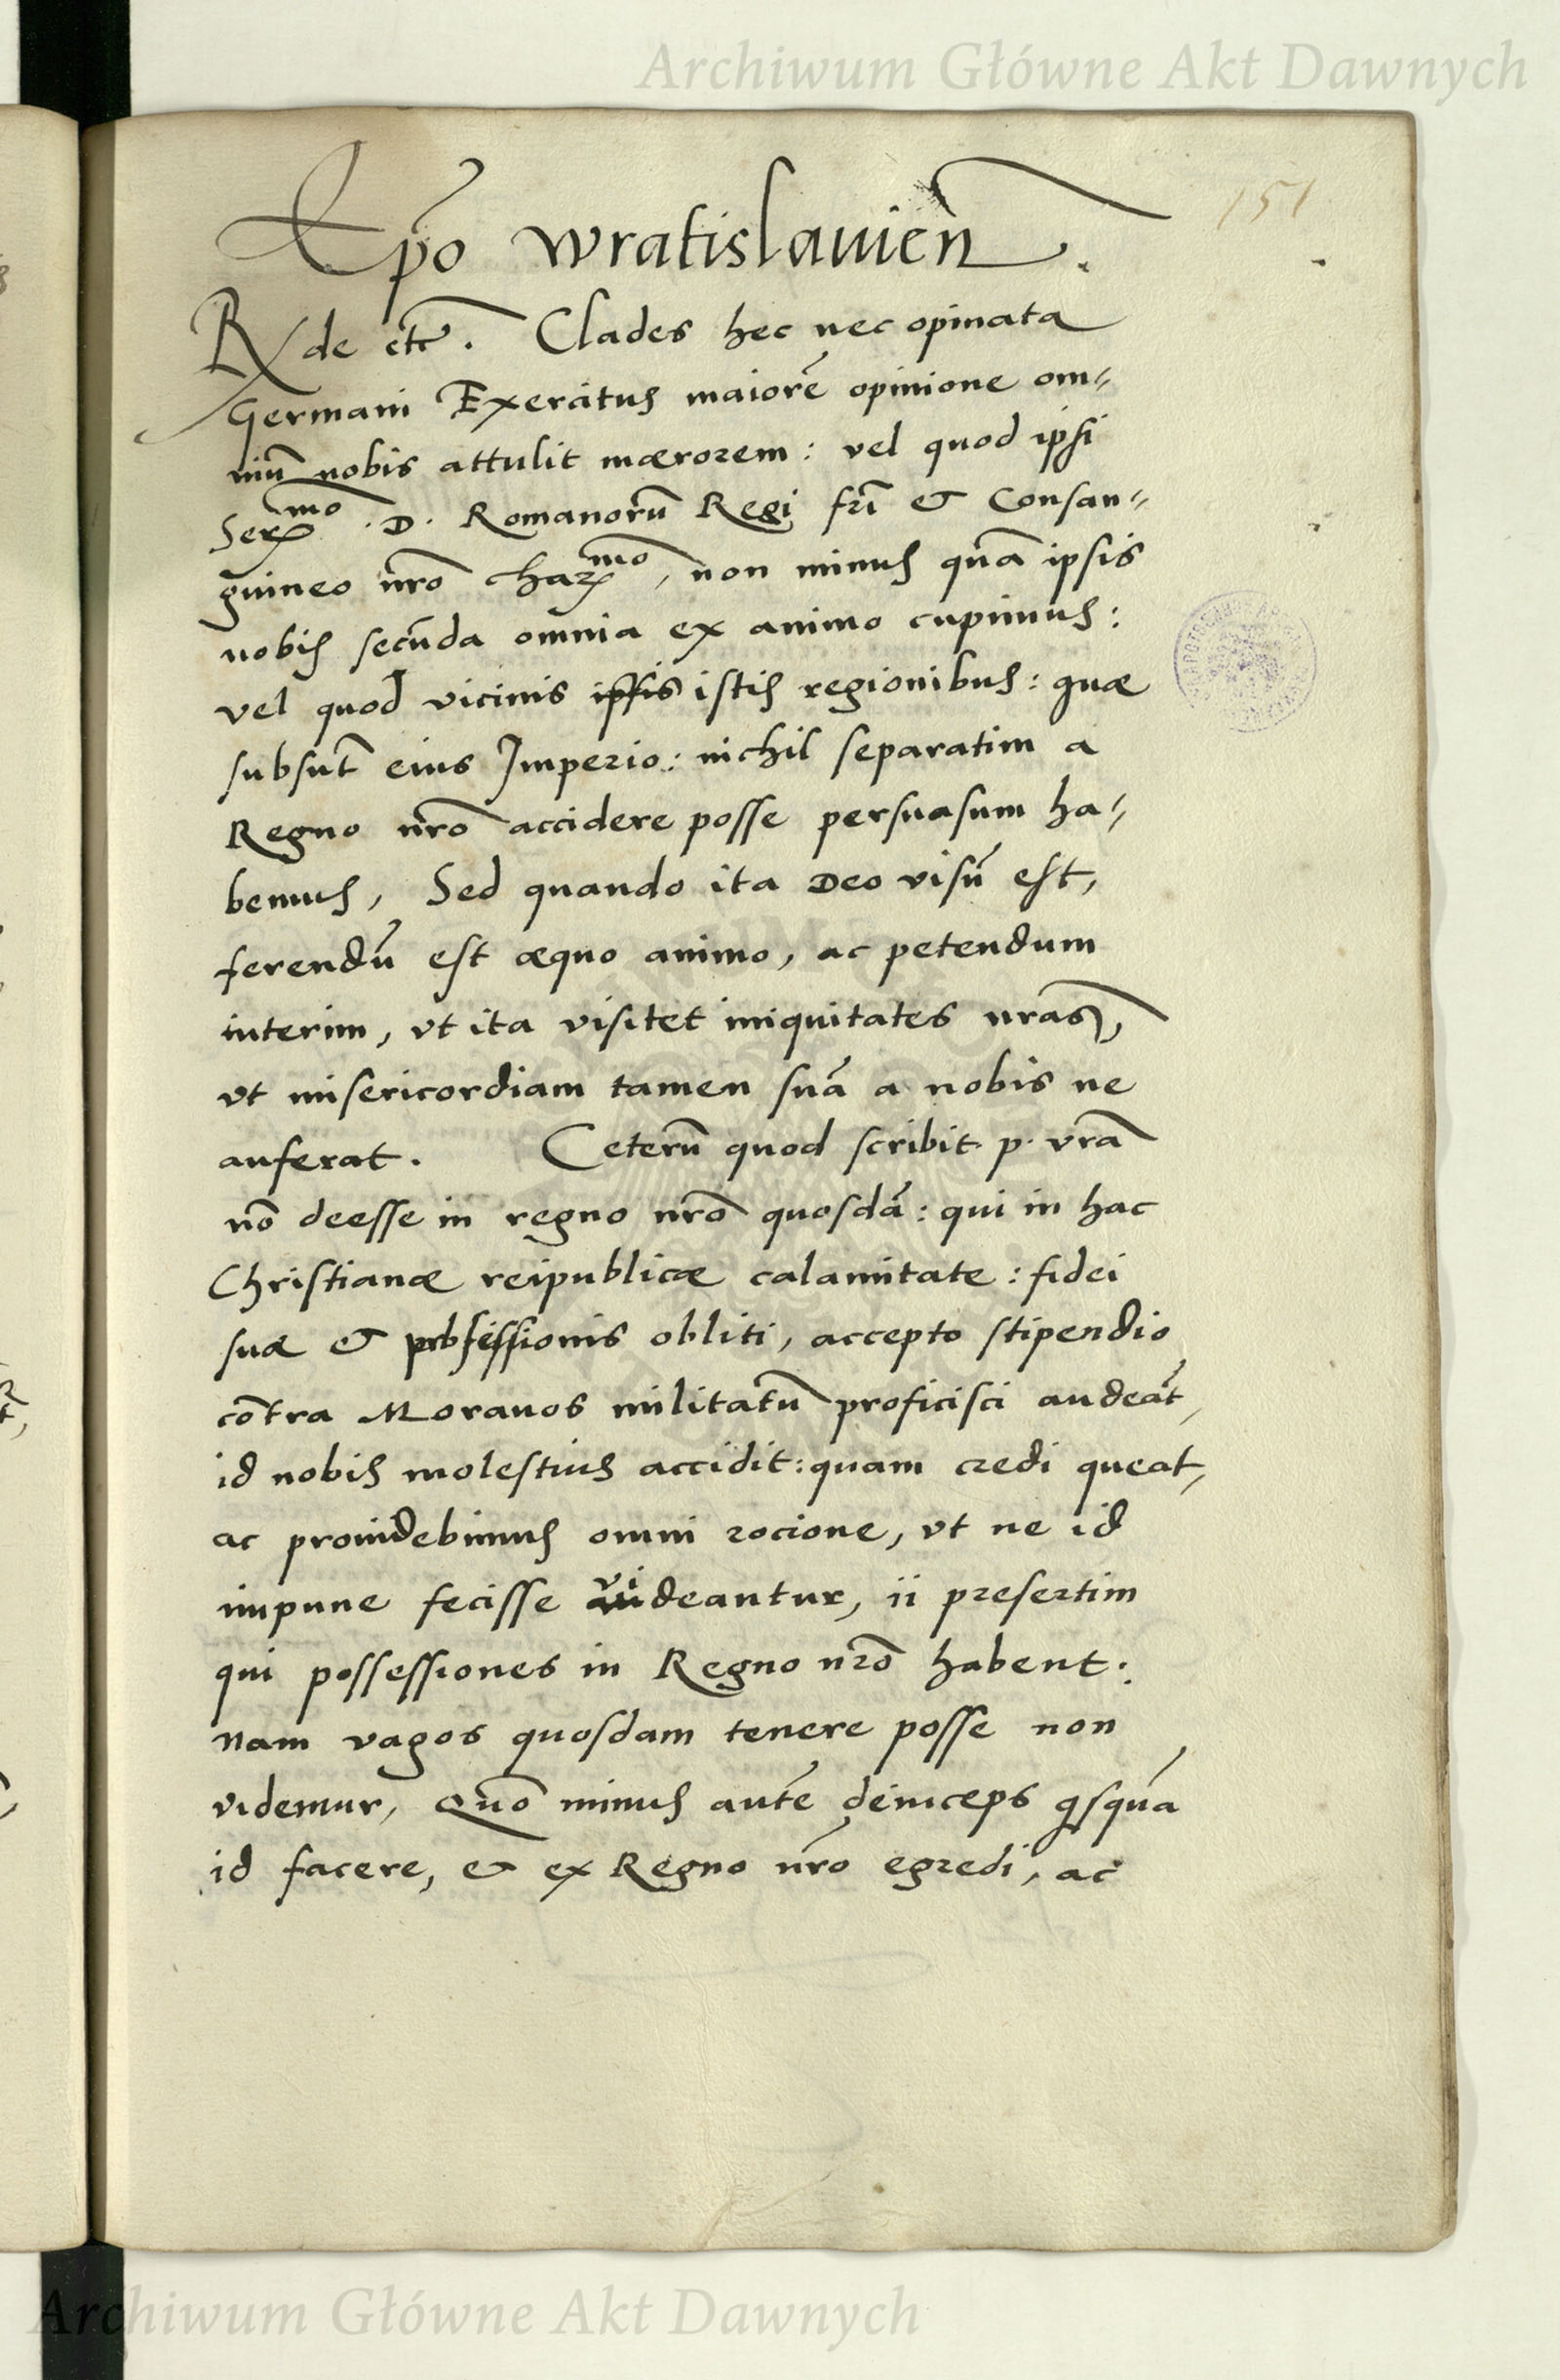 Archiwum Główne Akt Dawnych
151
Ep̄o wratislauien̄.
Rx̄de etc̄. Clades hec nec opinata
Germani Exercitus maiorē opinione om-
niū nobis attulit mærorem: vel quod ipsi
Serᵐᵒ .D. Romanorū Regi frī & Consan-
guineo nr̄o charᵐᵒ, non minus quā ipsis
nobis secūda omnia ex animo cupimus:
vel quod vicinis ipsis istis regionibus: quæ
subsūt eius Imperio: nichil separatim a
Regno nr̄o accidere posse persuasum ha-
bemus, Sed quando ita Deo visū est,
ferendū est æquo animo, ac petendum
interim, vt ita visitet iniquitates nr̄as,
vt misericordiam tamen suā a nobis ne
auferat. Ceterū quod scribit p. vr̄a
nō deesse in regno nr̄o quosdā: qui in hac
Christianæ reipublicæ calamitate: fidei
suæ & professionis obliti, accepto stipendio
cōtra Moravos militatū proficisci audeāt,
id nobis molestius accidit: quam credi queat,
ac prouidebimus omni racione, vt ne id
impune fecisse videantur, ii presertim
qui possessiones in Regno nr̄o habent:
Nam vagos quosdam tenere posse non
videmur, Quō minus autē deinceps qsquā
id facere, & ex Regno nr̄o egredi, ac
Archiwum Główne Akt Dawnych